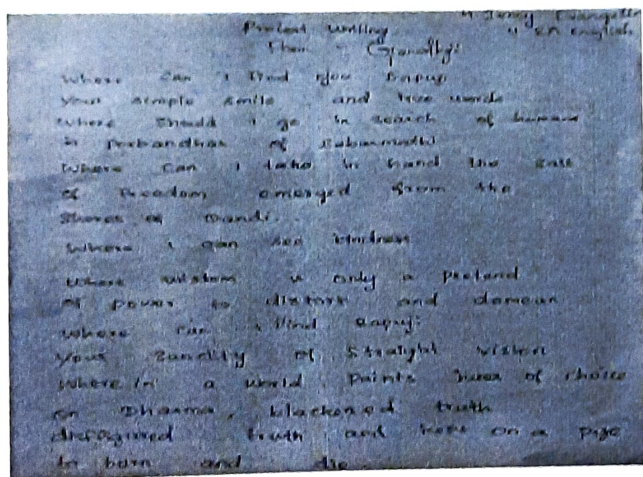 Project Writing
II BA English
Where can I find you Bapuji
your simple smile and true words
Where should I go in search of humans
in Porbandhar of Sabarmathi
Where can I take in hand the salt
of Freedom emerged from the
Shores of Dandi.
Where I can see kindness
Where wisdom is only a pretend
of power to distort and demean
Where can I find Bapuji
your Sanctity of Straight vision
Where in a world Paints hues of choice
on Dharma, blackened truth
disfigured truth and on a
to burn and die